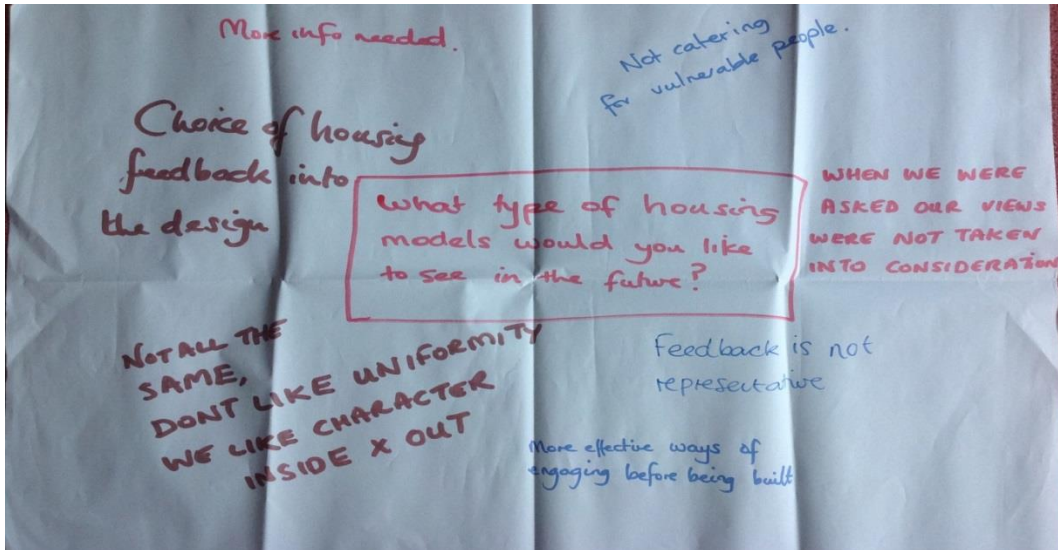 More info needed.
Not catering
for vulnerable people.
Choice of housing
feedback into
the design
What type of housing
models would you like
to see in the future?
WHEN WE WERE
ASKED OUR VIEWS
WERE NOT TAKEN
INTO CONSIDERATION
NOT ALL THE
SAME,
DONT LIKE UNIFORMITY
WE LIKE CHARACTER
INSIDE X OUT
Feedback is not
representative
More effective ways of
engaging before being built